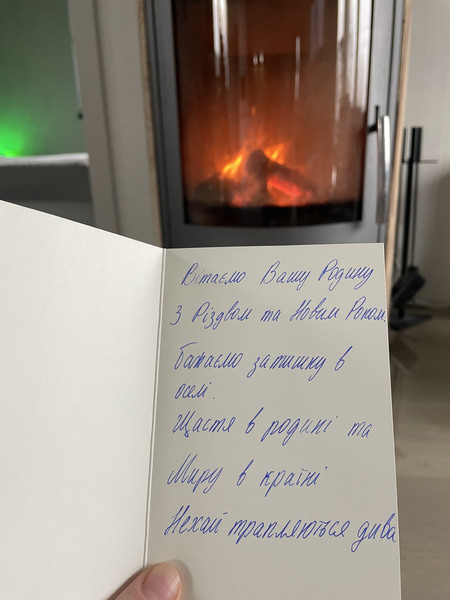 Вітаємо Вашу Родину
З Різдвом та Новим Роком.
Бажаємо затишку в
оселі.
Щастя в родині та
Миру в країні
Нехай трапляються дива